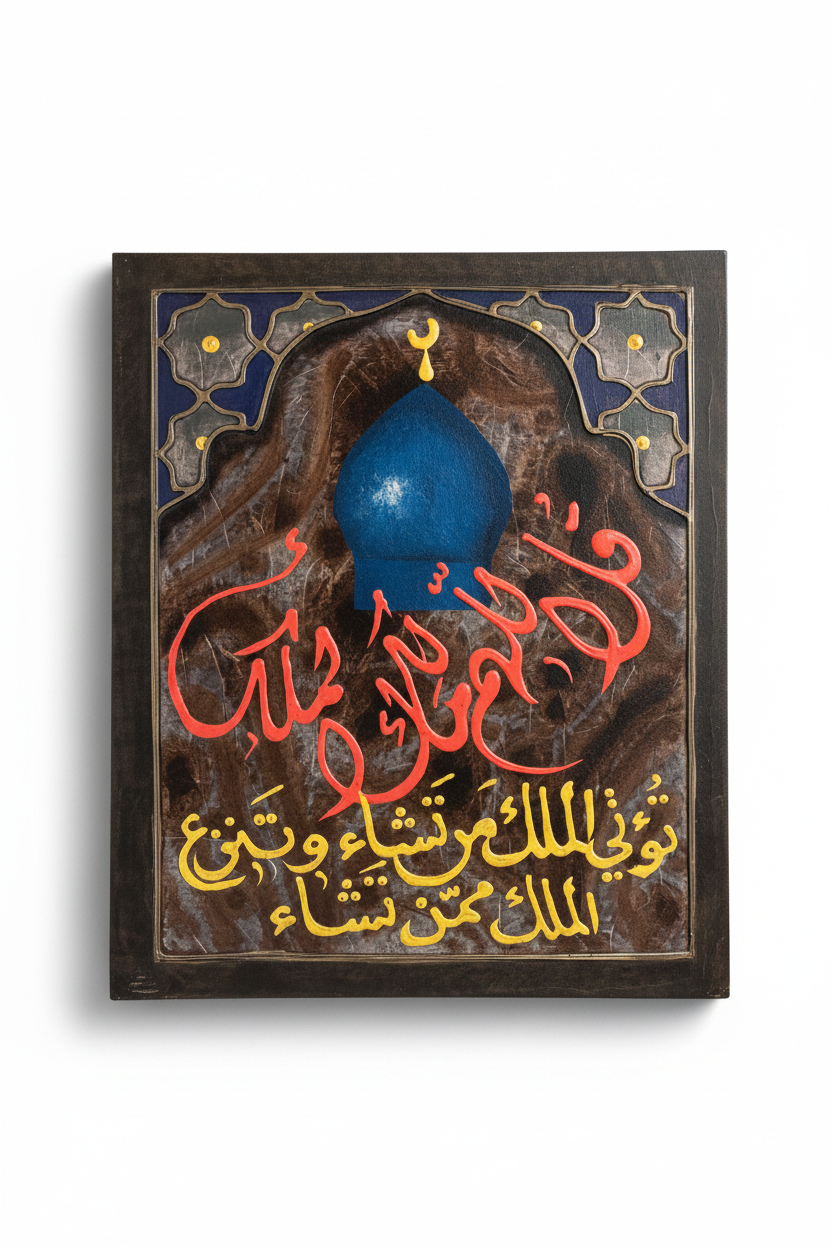 قل اللهم ملك الملك
تُؤتي الملك مَن تَشاء وتَنزع
الملك ممّنْ تَشَاء